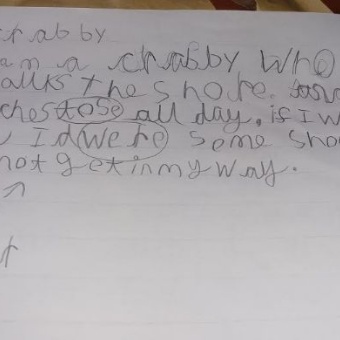 crabby
am a crabby who
alks the shore.
ches tose all day. if I w
I'd were some sho
not get in my way.